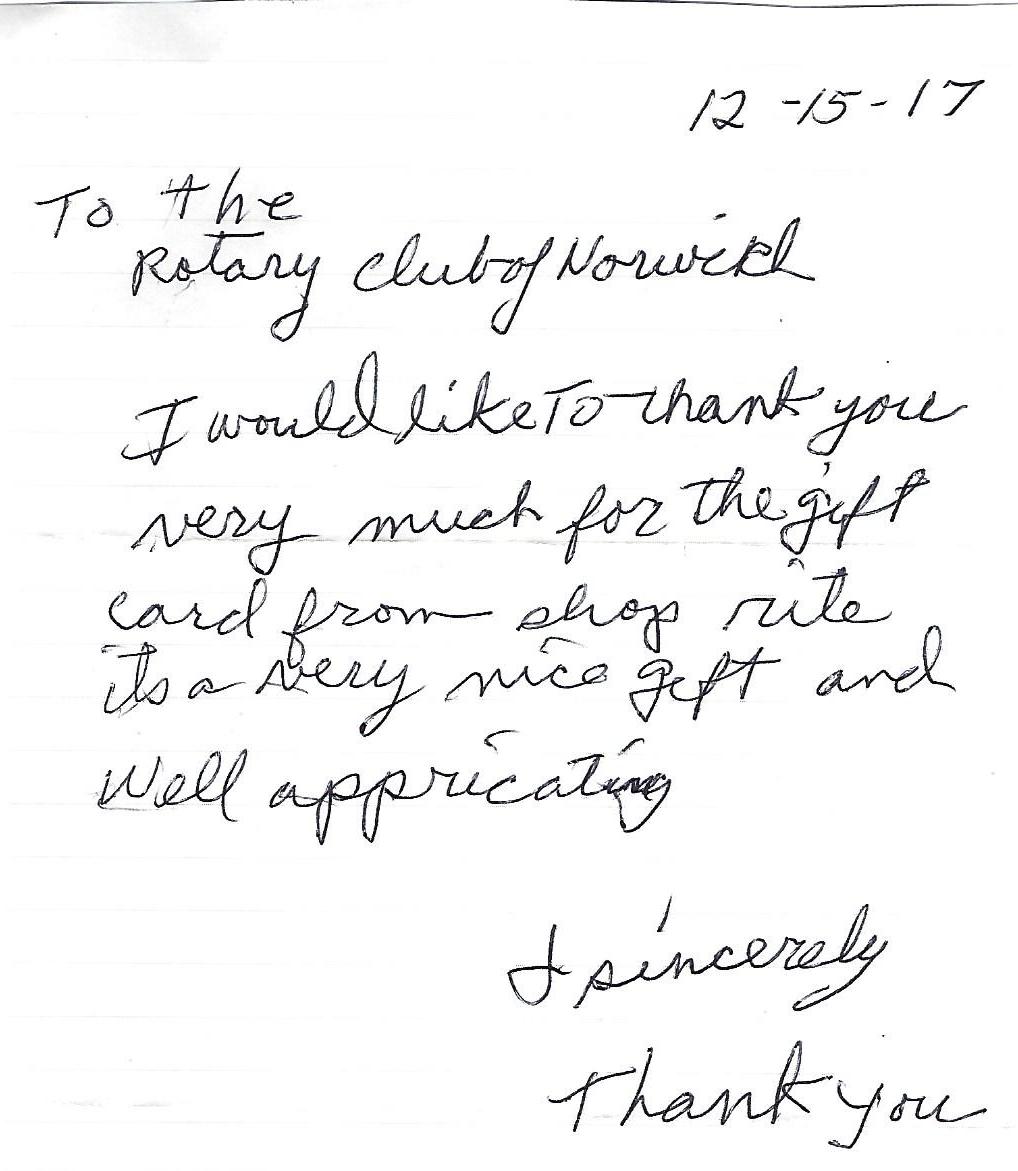 12-15-17
To the
Rotary club of Norwich
I would like To thank you
very much for the gift
card from shop rite
its a very nice gift and
Well appricating
I sincerely
Thank you